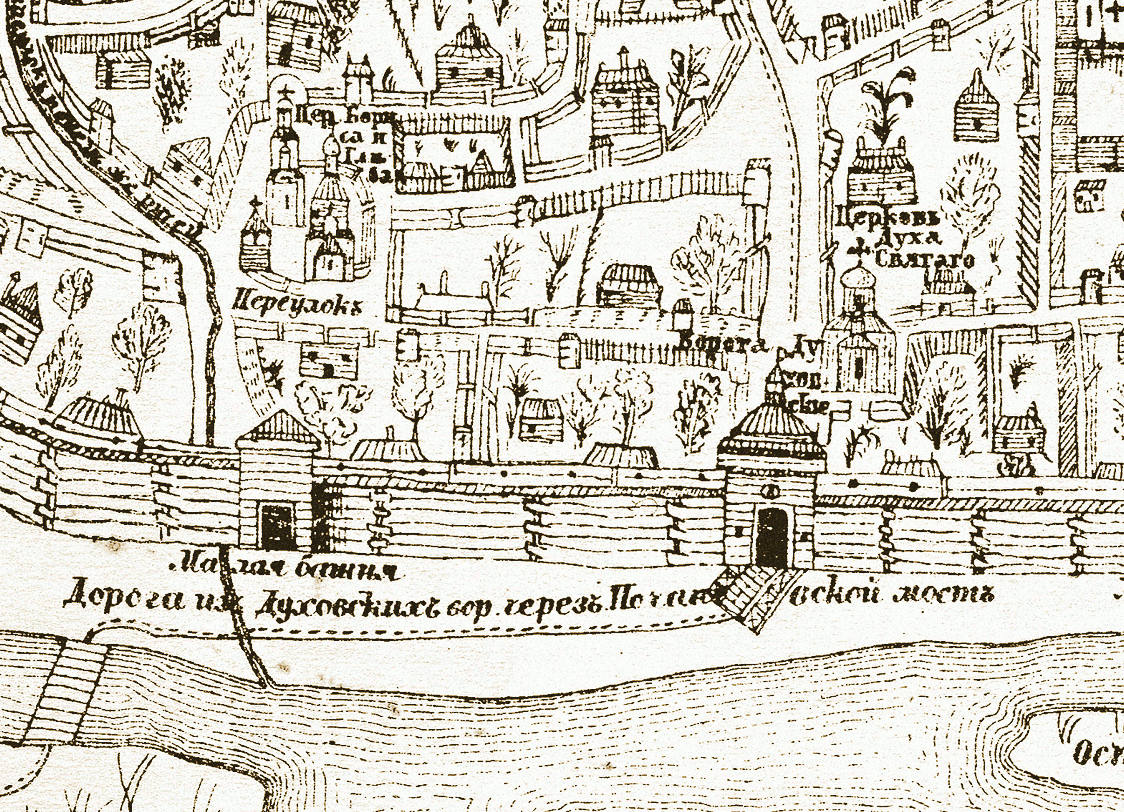 Цер. Бори
са и
Глѣ
ба
Церковь
Духа
Святаго
Переулокъ
Ворота Ду
хов
скіе
Малая башня
Дорога изъ Духовскихъ вор. черезъ Почаи
вской мостъ
Ост